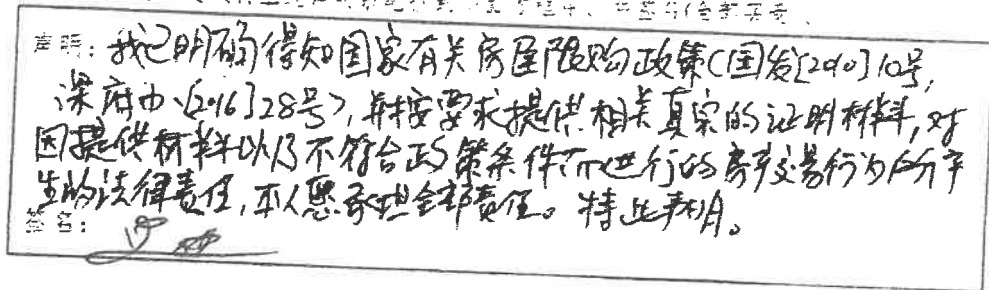 声明：我已明确得知国家有关房屋限购政策（国发[2010]10号，
深府办〔2016〕28号），并按要求提供相关真实的证明材料，对
因提供材料以及不符合政策条件而进行的房产交易行为所产
生的法律责任，本人愿承担全部责任。特此声明。
签名：